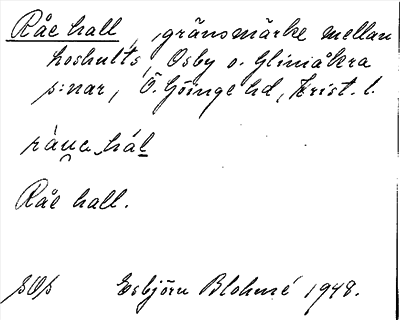 Råe hall, gränsmärke mellan
Loshults, Osby o. Glimåkra
s:nar, Ö. Göinge hd, Krist. l.
råua hál
Råe hall.
SOS Esbjörn Blohmé 1948.